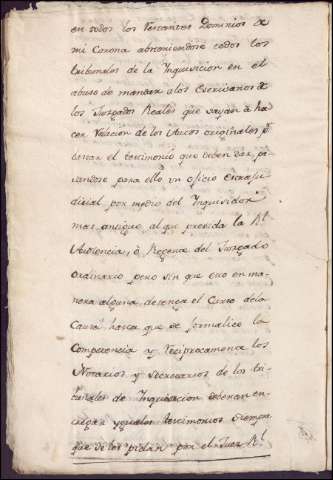 en todos los restantes Dominios de
mi Corona absteniendose todos los
tribunales de la Inquisicion en el
abuso de mandar alos Escrivanos de
los Juzgados Reales que vayan à ha
cer relacion de los Autos originales ò
llevar el testimonio que deben dar, pa
sandose para ello un oficio extraju
dicial por medio del Inquisidor
mas antiguo, al que presida la Rl
Audiencia, ò Regente del Juzgado
ordinario pero sin que esto en ma
nera alguna detenga el Curso dela
Causa hasta que se formalice la
Competencia y reciprocamente los
Notarios y Secretarios de los tri
bunales de Inquisicion deberan en
tregar yguales testimonios siempre
que se los pidan por el Juez Rl